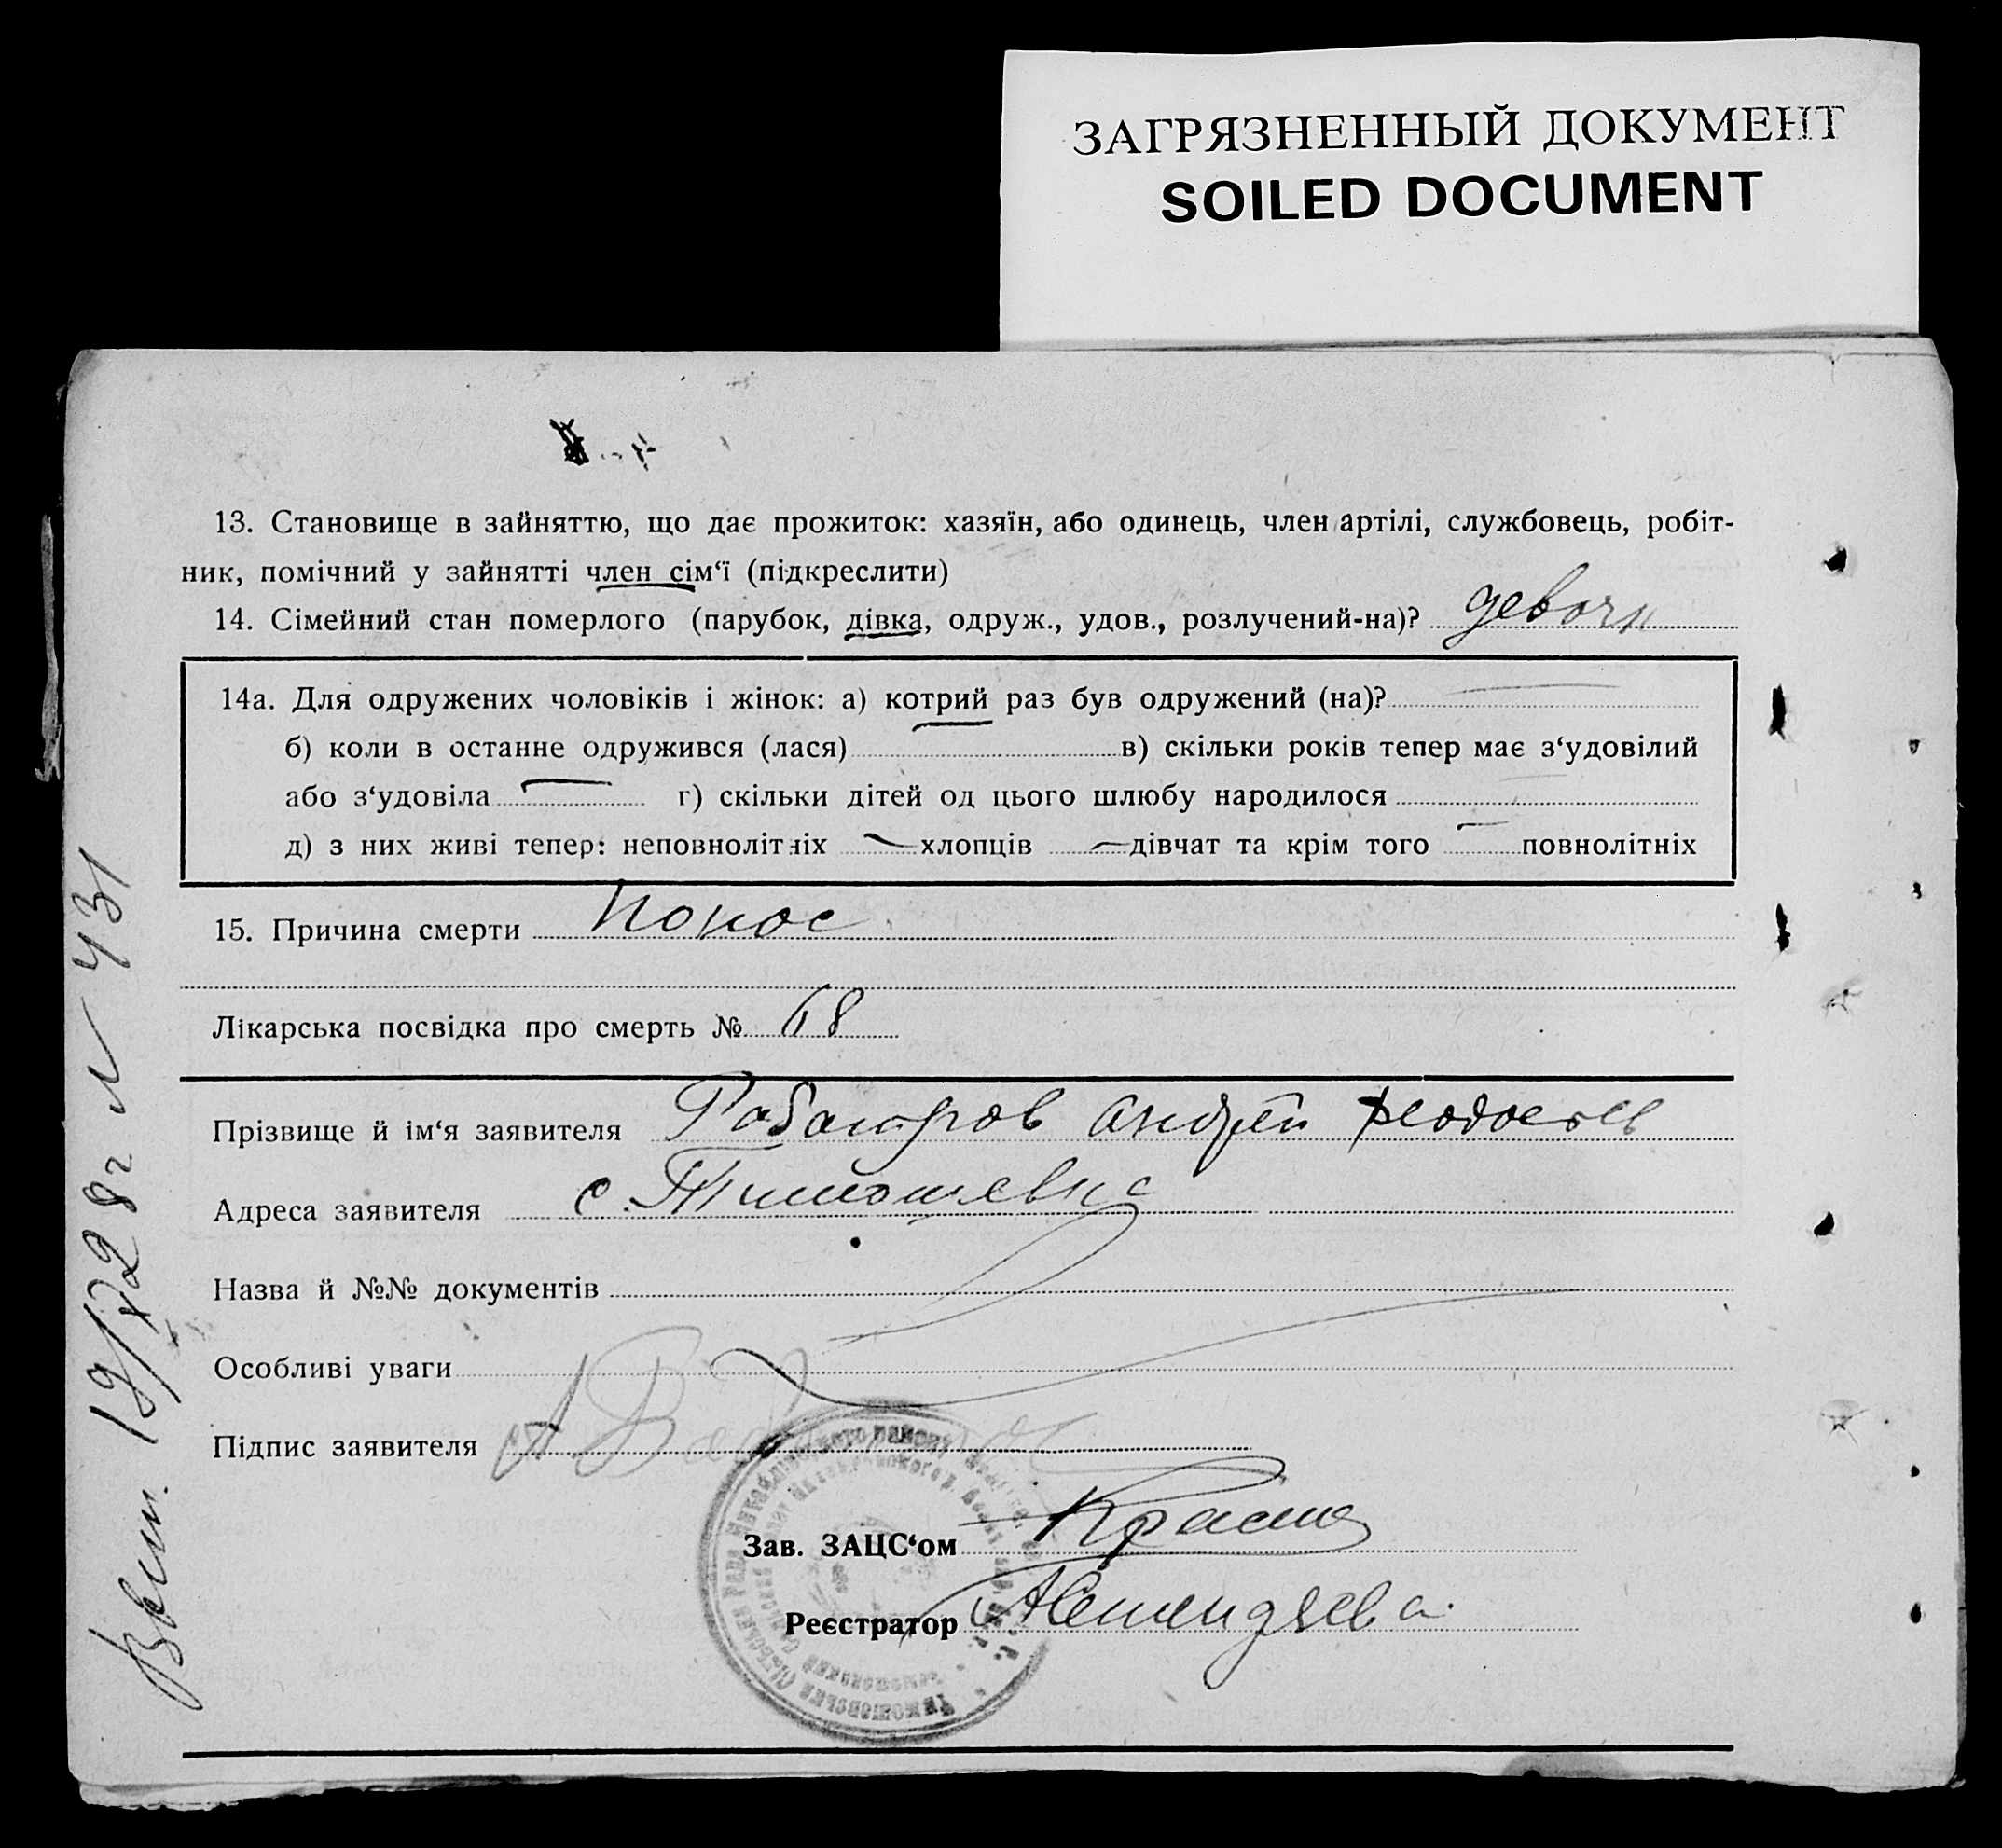 ЗАГРЯЗНЕННЫЙ ДОКУМЕНТ
SOILED DOCUMENT
13. Становище в зайняттю, що дає прожиток: хазяїн, або одинець, член артілі, службовець, робіт-
ник, помічний у зайнятті член сім‘ї (підкреслити)
14. Сімейний стан померлого (парубок, дівка, одруж., удов., розлучений-на)?
14а. Для одружених чоловіків і жінок: а) котрий раз був одружений (на)?
б) коли в останне одружився (лася) в) скільки років тепер має з‘удовілий
або з‘удовіла г) скільки дітей од цього шлюбу народилося
д) з них живі тепер: неповнолітніх хлопців дівчат та крім того повнолітніх
15. Причина смерти понос
Лікарська посвідка про смерть № 68
Прізвище й ім‘я заявителя Андрей
Адреса заявителя с. Тимошевка
Назва й №№ документів
Особливі уваги
Підпис заявителя
Зав. ЗАЦС‘ом
Реєстратор
28 г № 431